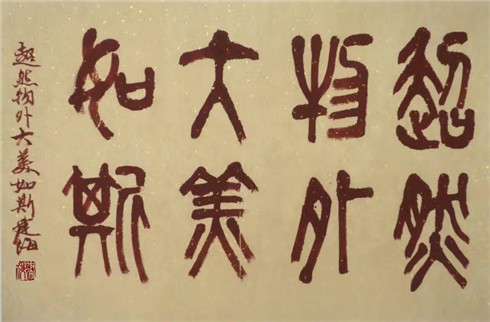 超然
物外
大美
如斯
超然物外大美如斯建